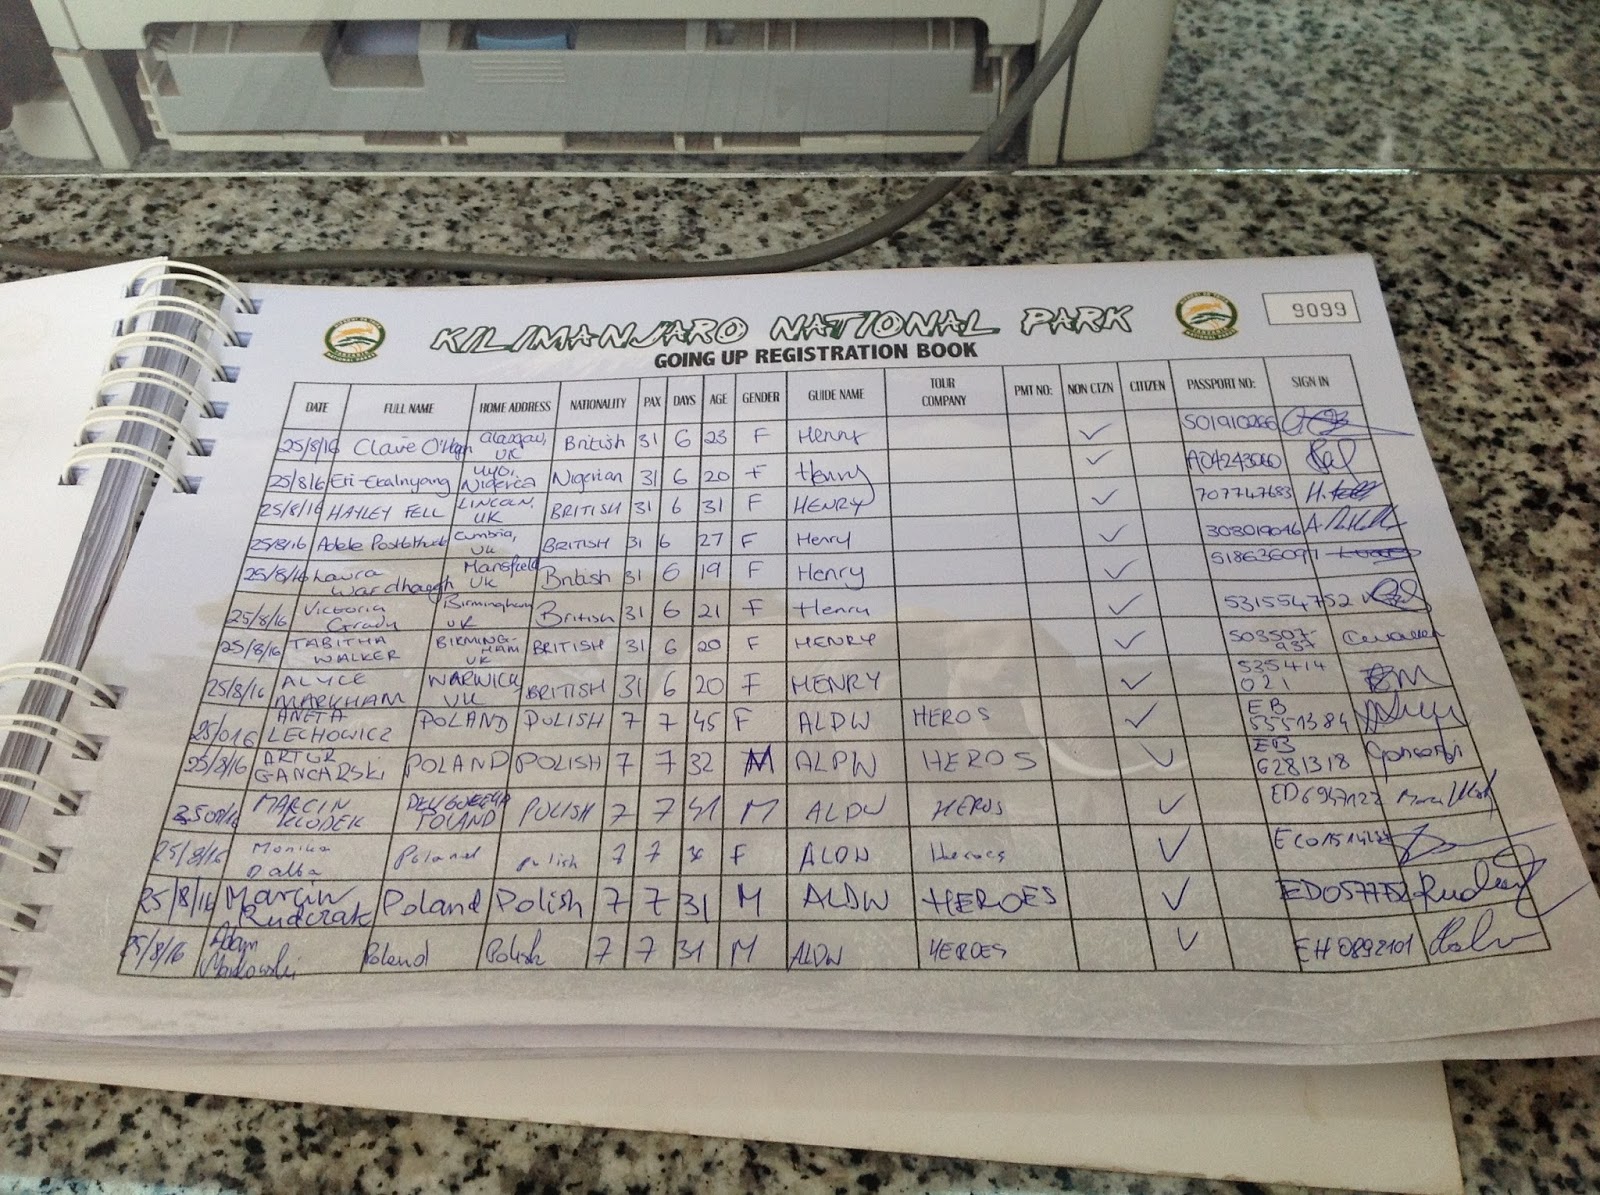 KILIMANJARO NATIONAL PARK
9099
GOING UP REGISTRATION BOOK
DATE FULL NAME HOME ADDRESS NATIONALITY PAX DAYS AGE GENDER GUIDE NAME TOUR COMPANY PMT NO: NON CTZN CITIZEN PASSPORT NO: SIGN IN
25/8/16 Claire O'Hagn Glasgow, UK British 31 6 23 F Henry ✓ 501910266
25/8/16 Eti-Ekalnyang Uyo, Nigeria Nigerian 31 6 20 F Henry ✓ A04243060
25/8/16 HAYLEY FELL LINCOLN, UK BRITISH 31 6 31 F HENRY ✓ 707747683 H. Fell
25/8/16 Adele Cumbria, UK BRITISH 31 6 27 F Henry ✓ 308019046
25/8/16 Laura Wardhaugh Mansfield UK British 31 6 19 F Henry ✓ 518636091
25/8/16 Victoria Grady Birmingham UK British 31 6 21 F Henry ✓ 531554752
25/8/16 TABITHA WALKER BIRMING-HAM UK BRITISH 31 6 20 F HENRY ✓ 503507-937
25/8/16 ALYCE MARKHAM WARWICK, UK BRITISH 31 6 20 F HENRY ✓ 535414021
25/016 ANETA LECHOWICZ POLAND POLISH 7 7 45 F ALDW HEROS ✓ EB 5351384
25/8/16 ARTUR GANCARSKI POLAND POLISH 7 7 32 M ALPW HEROS ✓ EB 6281318
MARCIN KLODEK POLAND POLISH 7 7 41 M ALDW HEROS ✓ ED6947122
25/8/16 Monika Dalba Poland polish 7 7 F ALDW Heroes ✓
25/8/16 Marcin Rudczak Poland Polish 7 7 31 M ALDW HEROES ✓ ED057752
25/8/16 Adam Markowski Poland Polish 7 7 31 M ALDW HEROES ✓ EH0892101